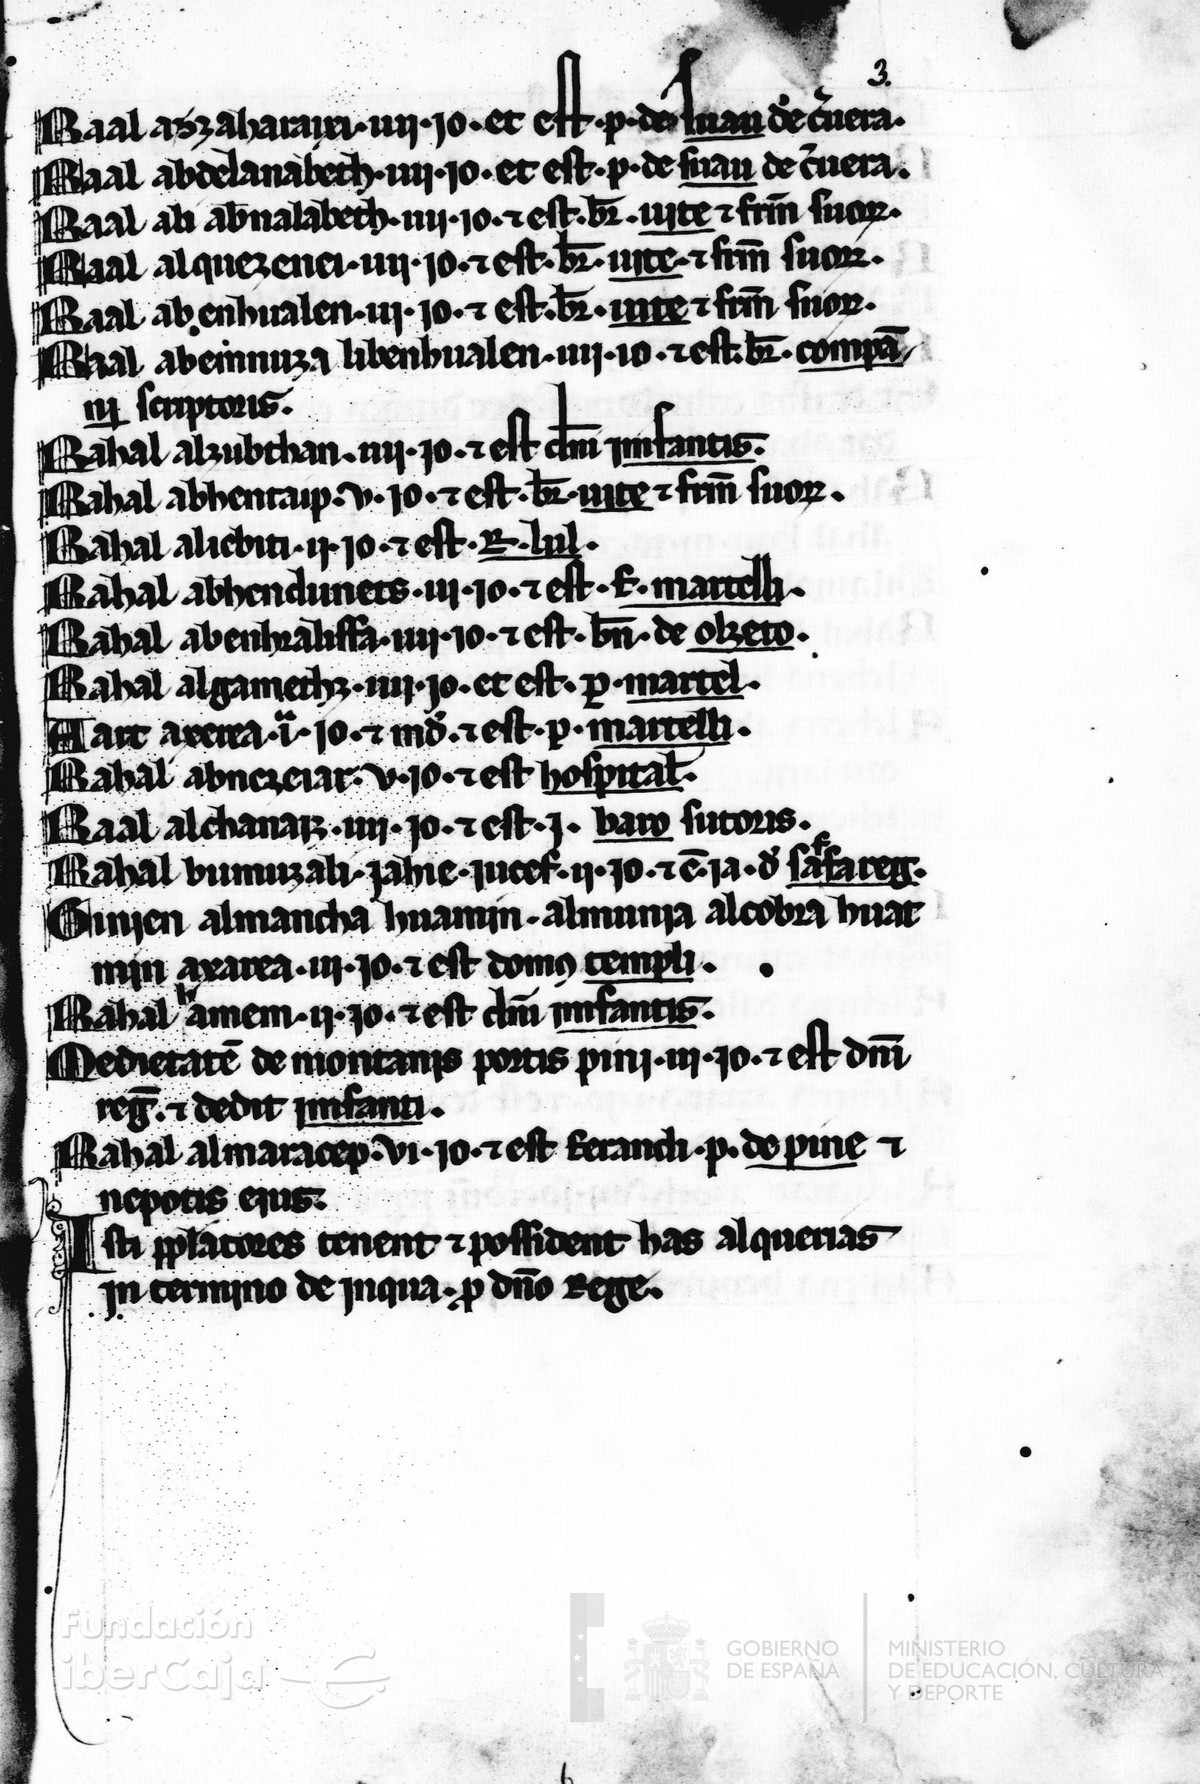 3.
Raal aszaharajxi·iiij·jo·et est·p·de suau de c̉uera.
Raal abdelanabeth·iiij·jo·et est·p·de suau de c̉uera.
Raal abi abnalabech·iiij·jo·⁊ est·br̄·uite ⁊ frm̄ suoꝝ.
Raal alquezenei·iiij·jo·⁊ est·br̄·uite·⁊ frm̄ suoꝝ.
Raal abenhualen·iij·jo·⁊ est·br̄·uite ⁊ frm̄ suoꝝ.
Raal abeinnuza libenhualen·iiij·jo·⁊ est·br̄·compā
nij scriptoris.
Rahal alzubthan·iiij·jo·⁊ est dm̄ jnfantis.
Rahal abhentaip·v·jo·⁊ est·br̄·uite ⁊ frm̄ suoꝝ.
Rahal alicbiti·ij·jo·⁊ est·R·lul.
Rahal abhendunets·iij·jo·⁊ est·f·martelli.
Rahal abenhralissa·iiij·jo·⁊ est·bn̄·de olzeto.
Rahal algamethz·iiij·jo·et est·p·martel.
Hart axerea·i·jo·⁊ md̉·⁊ est·p·martelli.
Rahal abnezeiar·v·jo·⁊ est hospital.
Raal alchanaz·iiij·jo·⁊ est·j·baro sutoris.
Rahal bumuzali·jahie·jucef·ij·jo·⁊ ē·ja·d̉ safareg.
Ginjen almancha huamin·almunja alcobra huat
min axarea·iij·jo·⁊ est domꝰ templi.
Rahal hamem·ij·jo·⁊ est dm̄ jnfantis.
Medietatē de montanis portis pinj·iij·jo·⁊ est dnī
reḡ·⁊ dedit jnfanti.
Rahal almaracep·vi·jo·⁊ est ferandi·p·de pine ⁊
nepotis ejus.
Isti pplatores tenent ⁊ possident has alquerias
jn termino de jnqua·p dn̄o Rege.
Fundación
iberCaja
GOBIERNO
DE ESPAÑA
MINISTERIO
DE EDUCACIÓN, CULTURA
Y DEPORTE